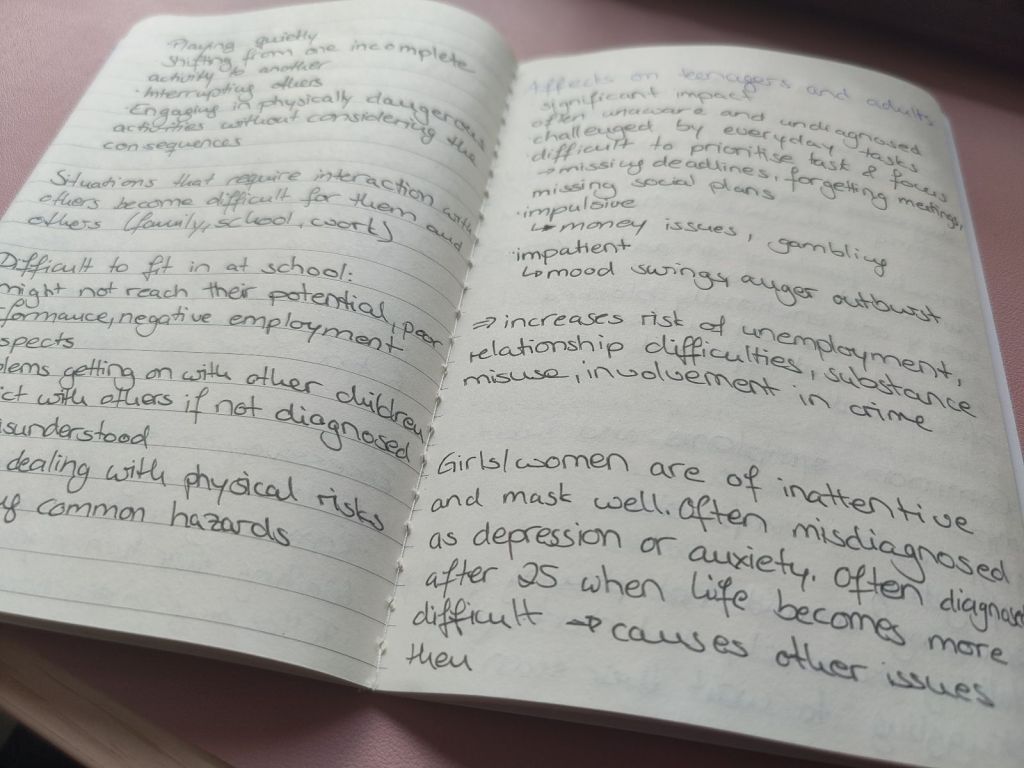 ·Playing quietly
·Shifting from one incomplete
activity to another
·Interrupting others
·Engaging in physically dangerous
activities without considering the
consequences
Situations that require interaction with
others become difficult for them and
others (family, school, work)
Difficult to fit in at school:
might not reach their potential, poor
formance, negative employment
spects
lems getting on with other children
ict with others if not diagnosed
isunderstood
dealing with physical risks
common hazards
Affects on teenagers and adults
significant impact
often unaware and undiagnosed
challenged by everyday tasks
difficult to prioritise task & focus
→missing deadlines, forgetting meetings,
missing social plans
·impulsive
↳money issues, gambling
impatient
↳mood swings, anger outburst
⇒ increases risk of unemployment,
relationship difficulties, substance
misuse, involvement in crime
Girls/women are of inattentive
and mask well. Often misdiagnosed
as depression or anxiety. Often diagnosed
after 25 when life becomes more
difficult → causes other issues
then